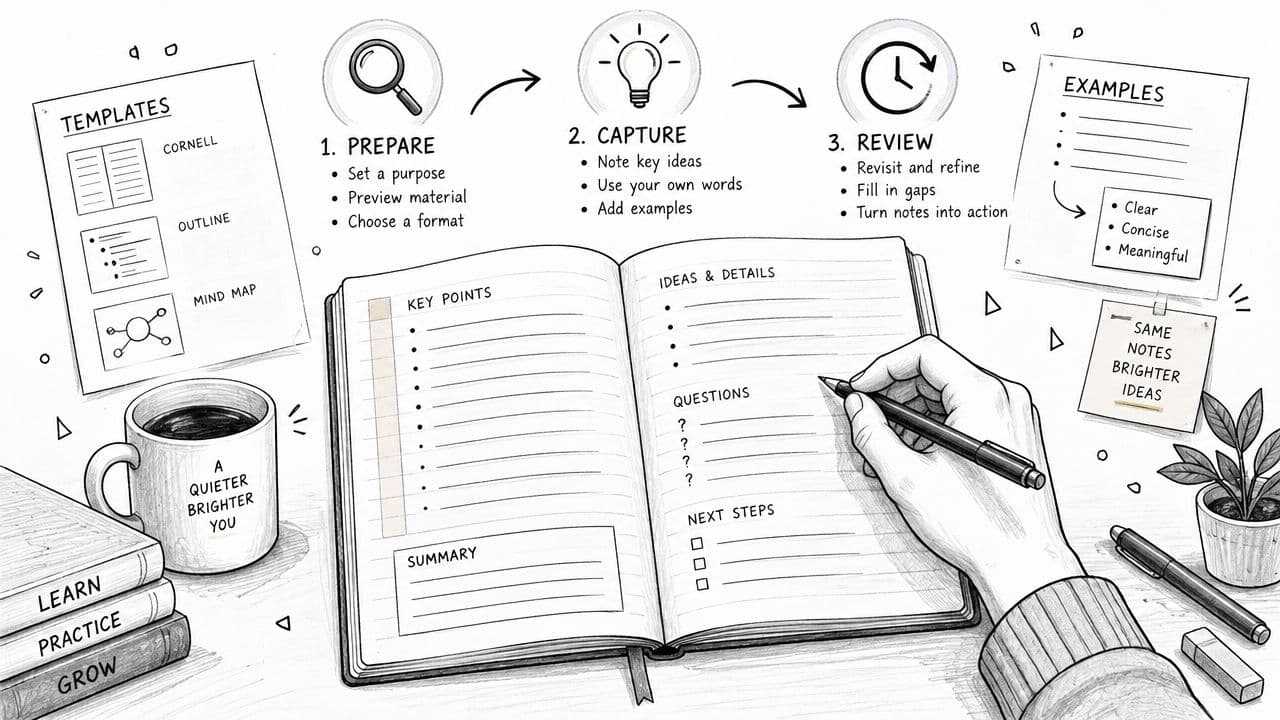 TEMPLATES
CORNELL
OUTLINE
MIND MAP
1. PREPARE
• Set a purpose
• Preview material
• Choose a format
2. CAPTURE
• Note key ideas
• Use your own words
• Add examples
3. REVIEW
• Revisit and refine
• Fill in gaps
• Turn notes into action
EXAMPLES
• Clear
• Concise
• Meaningful
SAME
NOTES
BRIGHTER
IDEAS
KEY POINTS
SUMMARY
IDEAS & DETAILS
QUESTIONS
?
?
?
?
NEXT STEPS
A
QUIETER
BRIGHTER
YOU
LEARN
PRACTICE
GROW